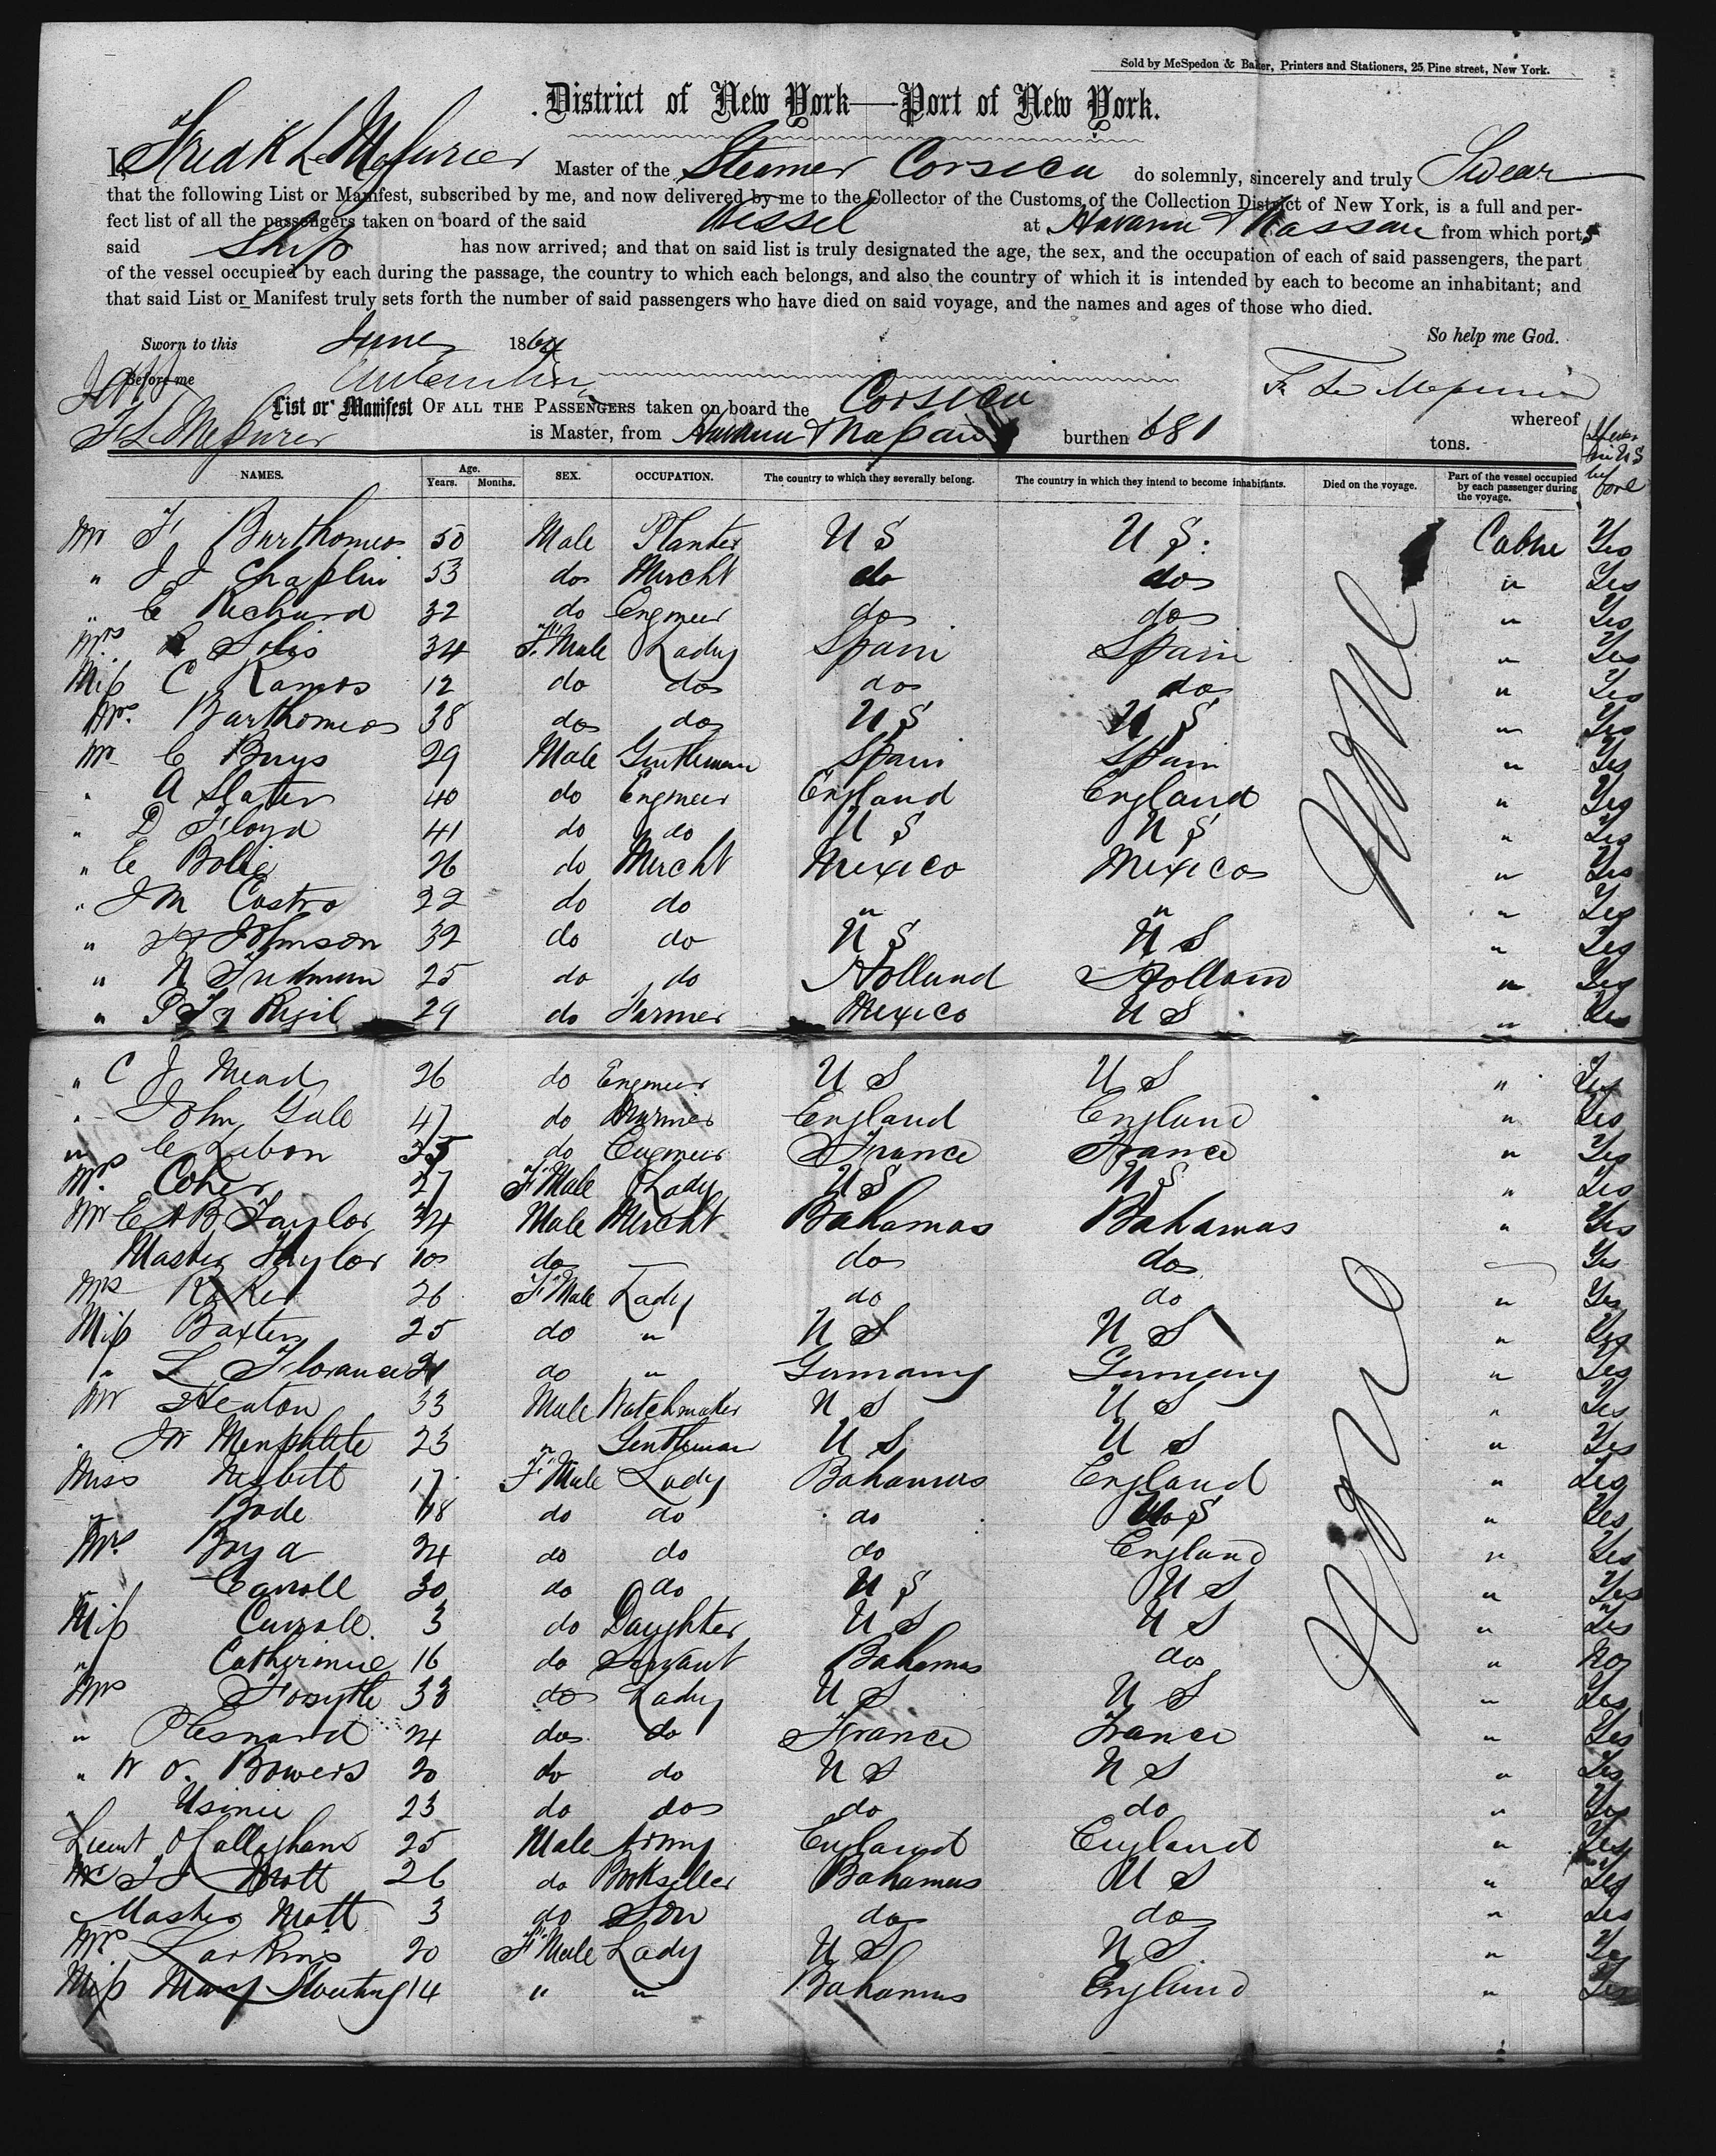 Sold by McSpedon & Baker, Printers and Stationers, 25 Pine street, New York.
District of New York—Port of New York.
I, Master of the Steamer Corsica do solemnly, sincerely and truly Swear
that the following List or Manifest, subscribed by me, and now delivered by me to the Collector of the Customs of the Collection District of New York, is a full and per-
fect list of all the passengers taken on board of the said Vessel at Havana & Nassau from which ports
said Ship has now arrived; and that on said list is truly designated the age, the sex, and the occupation of each of said passengers, the part
of the vessel occupied by each during the passage, the country to which each belongs, and also the country of which it is intended by each to become an inhabitant; and
that said List or Manifest truly sets forth the number of said passengers who have died on said voyage, and the names and ages of those who died.
So help me God.
Sworn to this June 1864
Before me
List or Manifest OF ALL THE PASSENGERS taken on board the Corsica whereof
is Master, from Havana & Nassau burthen 681 tons.
NAMES. Age. Years. Months. SEX. OCCUPATION. The country to which they severally belong. The country in which they intend to become inhabitants. Died on the voyage. Part of the vessel occupied by each passenger during the voyage.
Mr F Barthomeo 50 Male Planter U S U S. Cabin Yes
" J J Chaplin 53 do Mercht do do " Yes
" E Richard 32 do Engineer do do " Yes
Mrs Solis 34 F. Male Lady Spain Spain " Yes
Miss C Ramos 12 do do do do " Yes
Mrs. Barthomeo 38 do do U S U S " Yes
Mr C Buys 29 Male Gentleman Spain Spain " Yes
" A Slater 40 do Engineer England England " Yes
" D Floyd 41 do do U S U S " Yes
" E Bolie 26 do Mercht Mexico Mexico " Yes
" J M Castro 22 do do " " " Yes
" H Johnson 32 do do U S U S " Yes
" N 25 do do Holland Holland " Yes
" 29 do Farmer Mexico U S " Yes
" C J Mead 26 do Engineer U S U S " Yes
" John Gale 47 do Mariner England England " Yes
" E Labon 35 do Engineer France France " Yes
Mrs. Cohen 27 F Male Lady U S U S " Yes
Mr E A B Taylor 34 Male Mercht Bahamas Bahamas " Yes
Master Taylor 10 do — do do Yes
Mrs 26 F Male Lady do do " Yes
Miss Baxter 25 do " U S U S " Yes
" L Florance do " Germany Germany " Yes
Mr Heaton 33 Male Watchmaker U S U S " Yes
" 23 " Gentleman U S U S " Yes
Miss Nesbitt 17 F Male Lady Bahamas England " Yes
" Bode 18 do do do U S " Yes
Mrs. 24 do do do England " Yes
" Carroll 30 do do U S U S " Yes
Miss Carroll 3 do Daughter U S U S " Yes
" Catherine 16 do Servant Bahamas do " No
Mrs Forsyth 33 do Lady U S U S " Yes
" 24 do do France France " Yes
" Bowers 20 do do U S U S " Yes
" 23 do do do do " Yes
Lieut O'Callaghan 25 Male Army England England " Yes
Mr Mott 26 do Bookseller Bahamas U S " Yes
Master Mott 3 do Son do do " Yes
Mrs. Larkins 20 F Male Lady U S U S " Yes
Miss Mary 14 " " Bahamas England " Yes
None
None